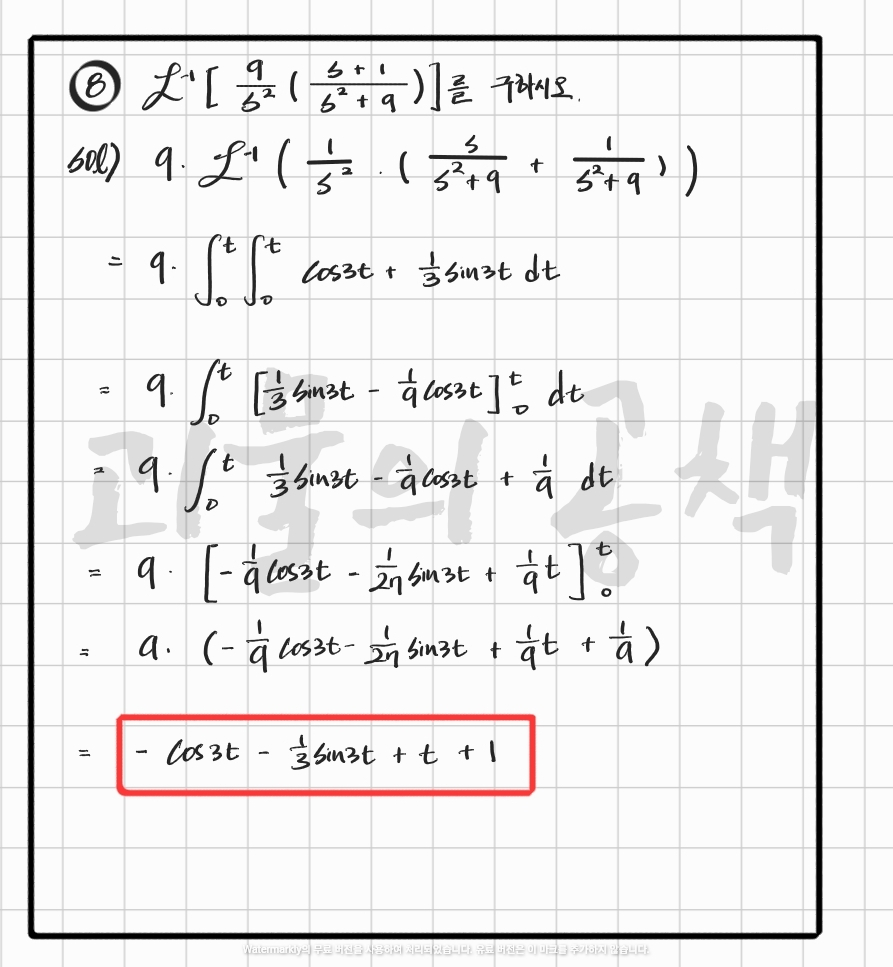 ⑧ ℒ⁻¹[ 9/s² ( (s+1)/(s²+9) ) ]를 구하시오.
sol) 9· ℒ⁻¹ ( 1/s² · ( s/(s²+9) + 1/(s²+9) ) )
= 9· ∫₀ᵗ ∫₀ᵗ cos3t + 1/3 sin3t dt
= 9· ∫₀ᵗ [ 1/3 sin3t - 1/9 cos3t ]₀ᵗ dt
= 9· ∫₀ᵗ 1/3 sin3t - 1/9 cos3t + 1/9 dt
괴물의 공책
= 9· [ - 1/9 cos3t - 1/27 sin3t + 1/9 t ]₀ᵗ
= 9· ( - 1/9 cos3t - 1/27 sin3t + 1/9 t + 1/9 )
= - cos3t - 1/3 sin3t + t + 1
Watermarkly의 무료 버전을 사용하여 처리되었습니다. 유료 버전은 이 마크를 추가하지 않습니다.